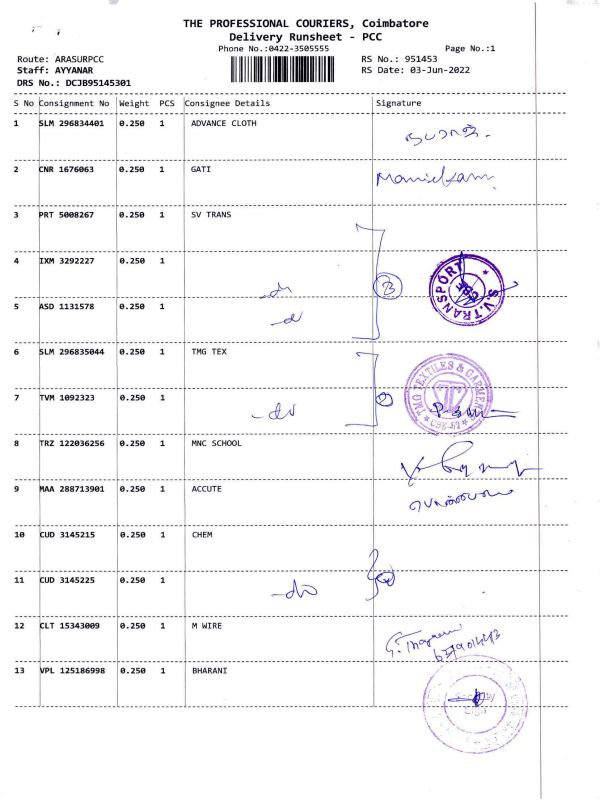 THE PROFESSIONAL COURIERS, Coimbatore
Delivery Runsheet - PCC
Phone No.:0422-3505555 Page No.:1
Route: ARASURPCC RS No.: 951453
Staff: AYYANAR RS Date: 03-Jun-2022
DRS No.: DCJB95145301
S No Consignment No Weight PCS Consignee Details Signature
1 SLM 296834401 0.250 1 ADVANCE CLOTH
2 CNR 1676063 0.250 1 GATI
3 PRT 5008267 0.250 1 SV TRANS
4 IXM 3292227 0.250 1
-do
3
S.V.TRANSPORT
5 ASD 1131578 0.250 1
-do
6 SLM 296835044 0.250 1 TMG TEX
TMG TEXTILES & GARMENTS
7 TVM 1092323 0.250 1
-do
8 TRZ 122036256 0.250 1 MNC SCHOOL
9 MAA 288713901 0.250 1 ACCUTE
10 CUD 3145215 0.250 1 CHEM
11 CUD 3145225 0.250 1
-do
12 CLT 15343009 0.250 1 M WIRE
13 VPL 125186998 0.250 1 BHARANI